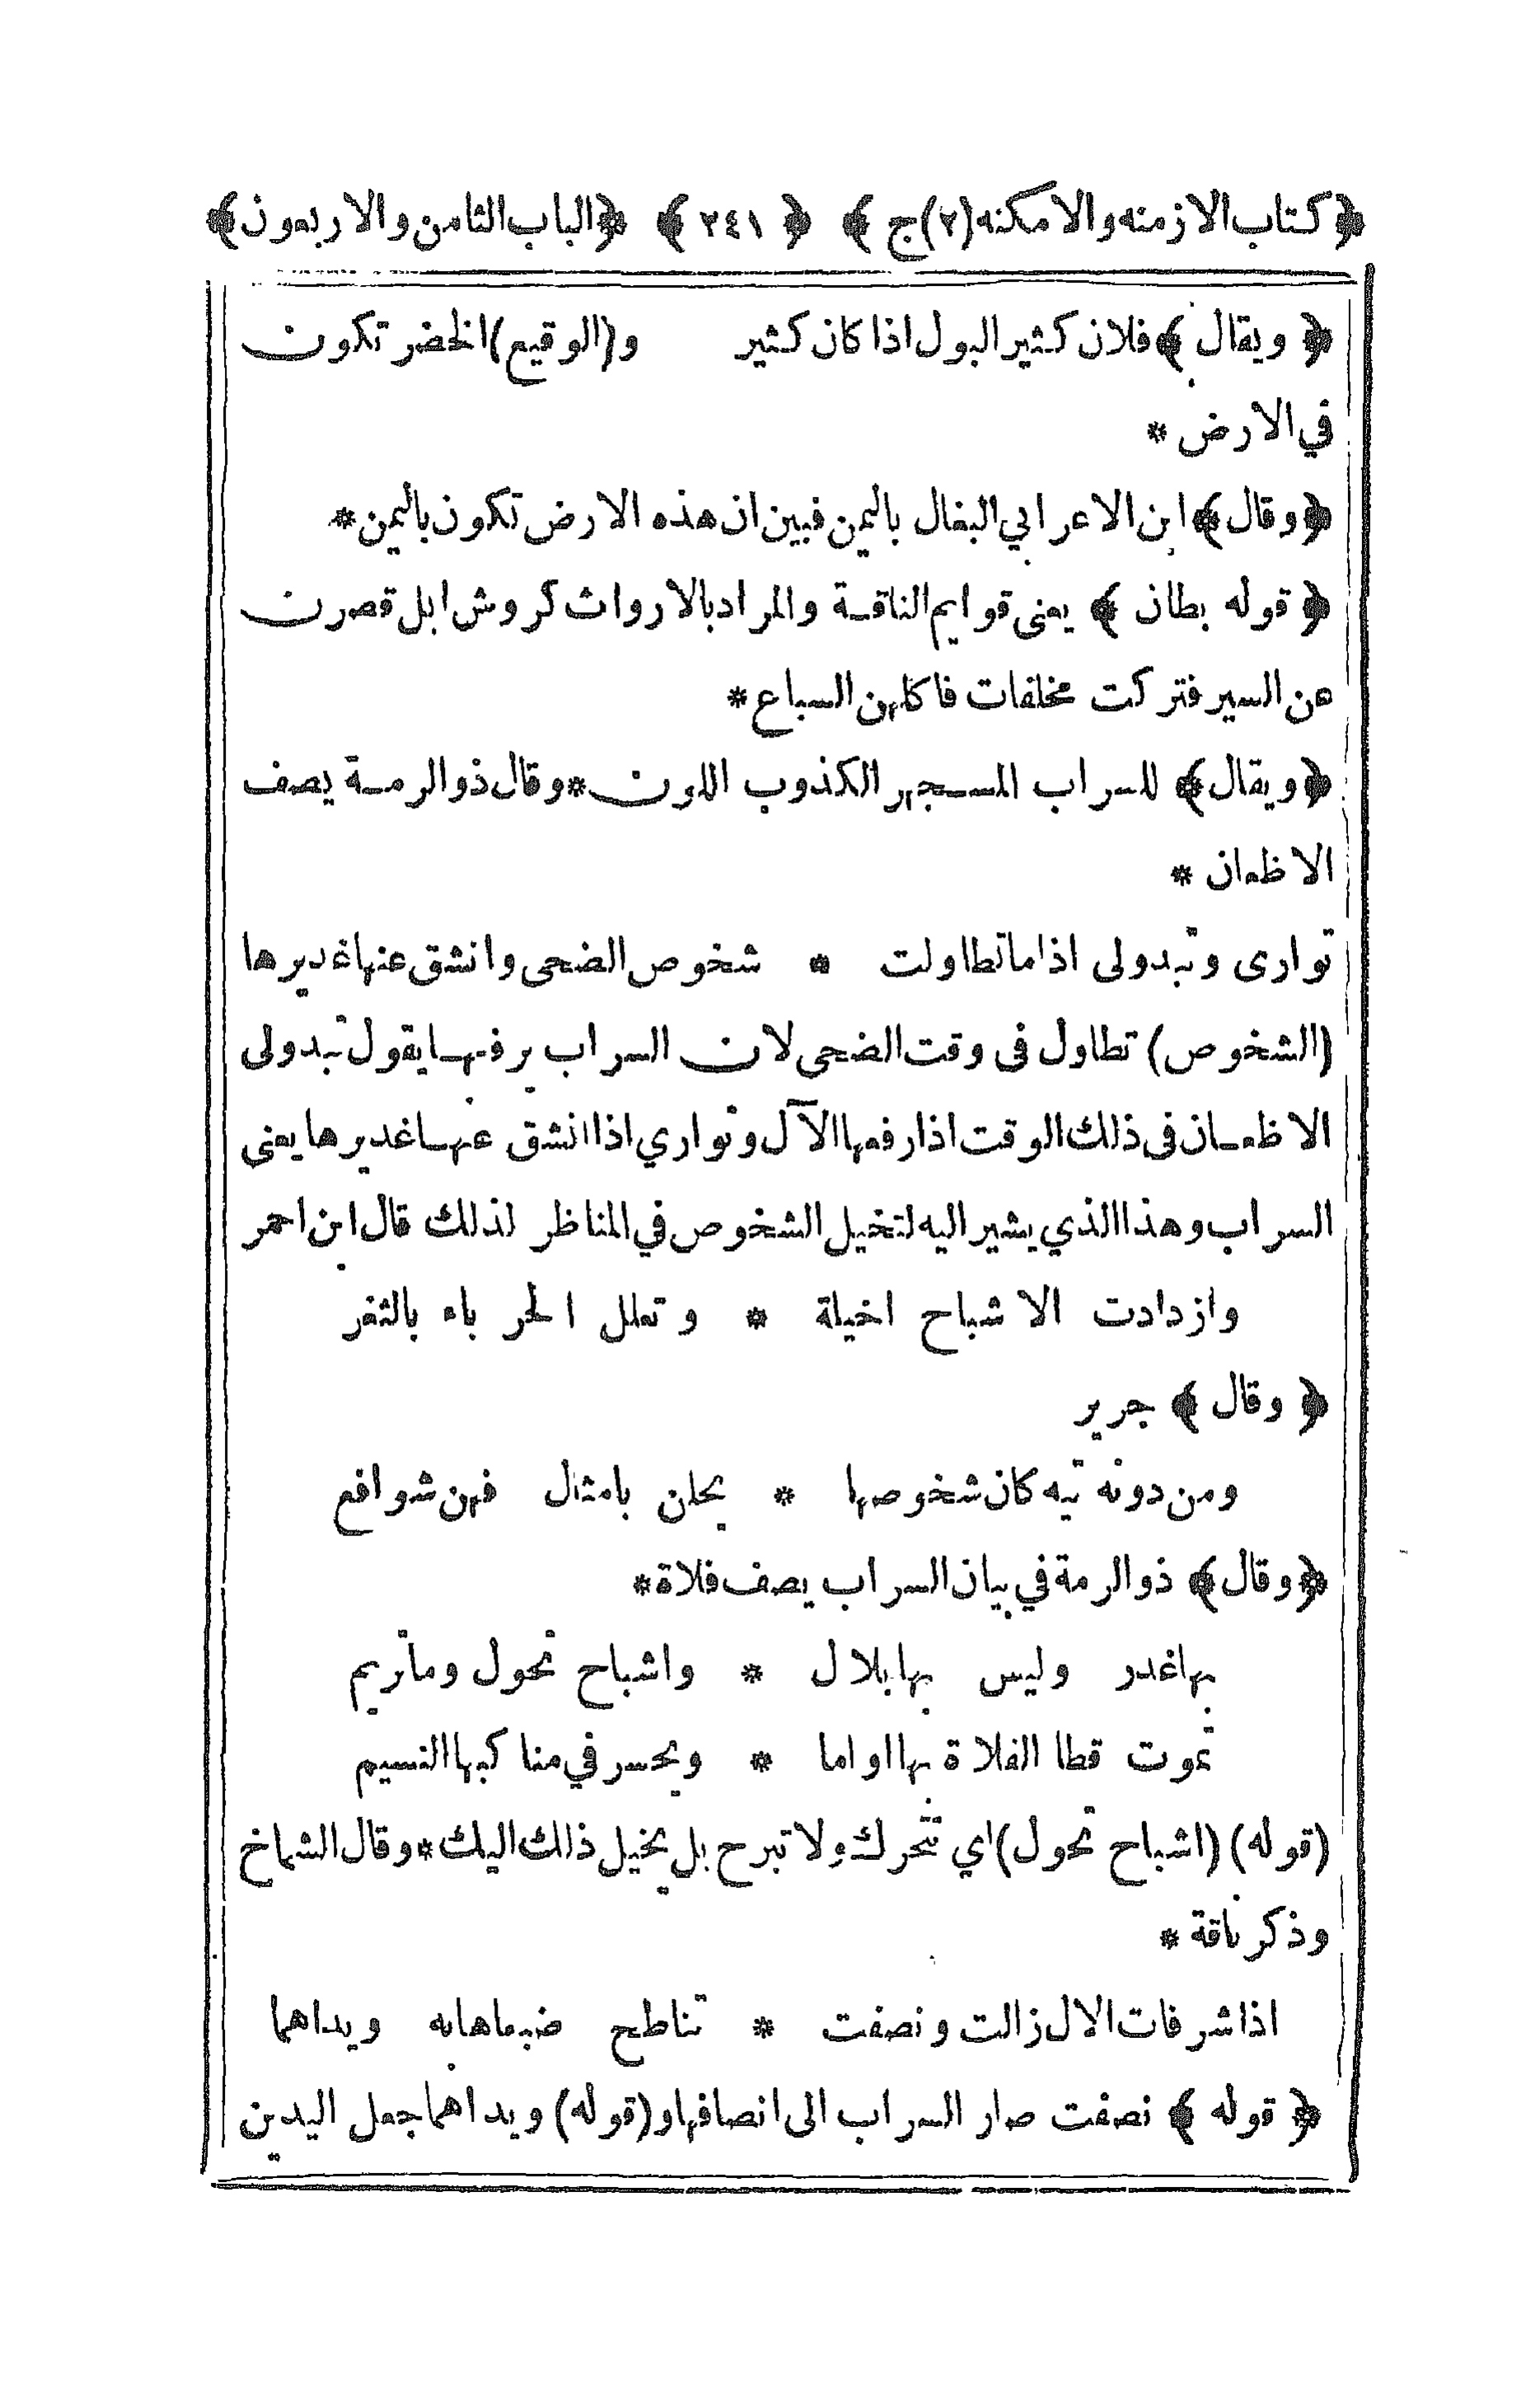 ﴿كتاب الازمنه والامكنه(٢)ج ﴾ ﴿ ٢٤١ ﴾ ﴿الباب الثامن والاربعون﴾
﴿ ويقال ﴾ فلان كثير البول اذا كان كثير و(الوقيع) الخضر تكون
في الارض *
﴿وقال﴾ ابن الاعرابي البغال باليمن فبين ان هذه الارض تكون باليمن*
﴿ قوله بطان ﴾ يعنى قوايم الناقة والمراد بالارواث كروش ابل قصرن
عن السير فتركت مخلفات فاكلهن السباع*
﴿ويقال﴾ للسراب المسجهر الكذوب اللون*وقال ذوالرمة يصف
الاظعان *
توارى وتبدولى اذا ماتطاولت * شخوص الضحى وانشق عنها غديرها
(الشخوص) تطاول فى وقت الضحى لان السراب يرفعها يقول تبدولى
الاظعان فى ذلك الوقت اذا رفعها الآل وتواري اذا انشق عنها غديرها يعنى
السراب وهذا الذي يشير اليه لتخيل الشخوص في المناظر لذلك قال ابن احمر
وازدادت الاشباح اخيلة * وتعلل الحرباء بالثغر
﴿ وقال ﴾ جرير
ومن دونه تيه كان شخوصها * يحلن بامثال فهن شوافع
﴿وقال﴾ ذوالرمة في بيان السراب يصف فلاة*
بها غدر وليس بها بلال * واشباح تحول وما تريم
تموت قطا الفلاة بها اواما * ويحسر في مناكبها النسيم
(قوله) (اشباح تحول) اي تتحرك ولا تبرح بل يخيل ذلك اليك*وقال الشماخ
وذكر ناقة *
اذا شرفات الال زالت ونصفت * تناطح ضبعاها به ويداهما
﴿ قوله ﴾ نصفت صار السراب الى انصافها و(قوله) ويداهما جعل اليدين